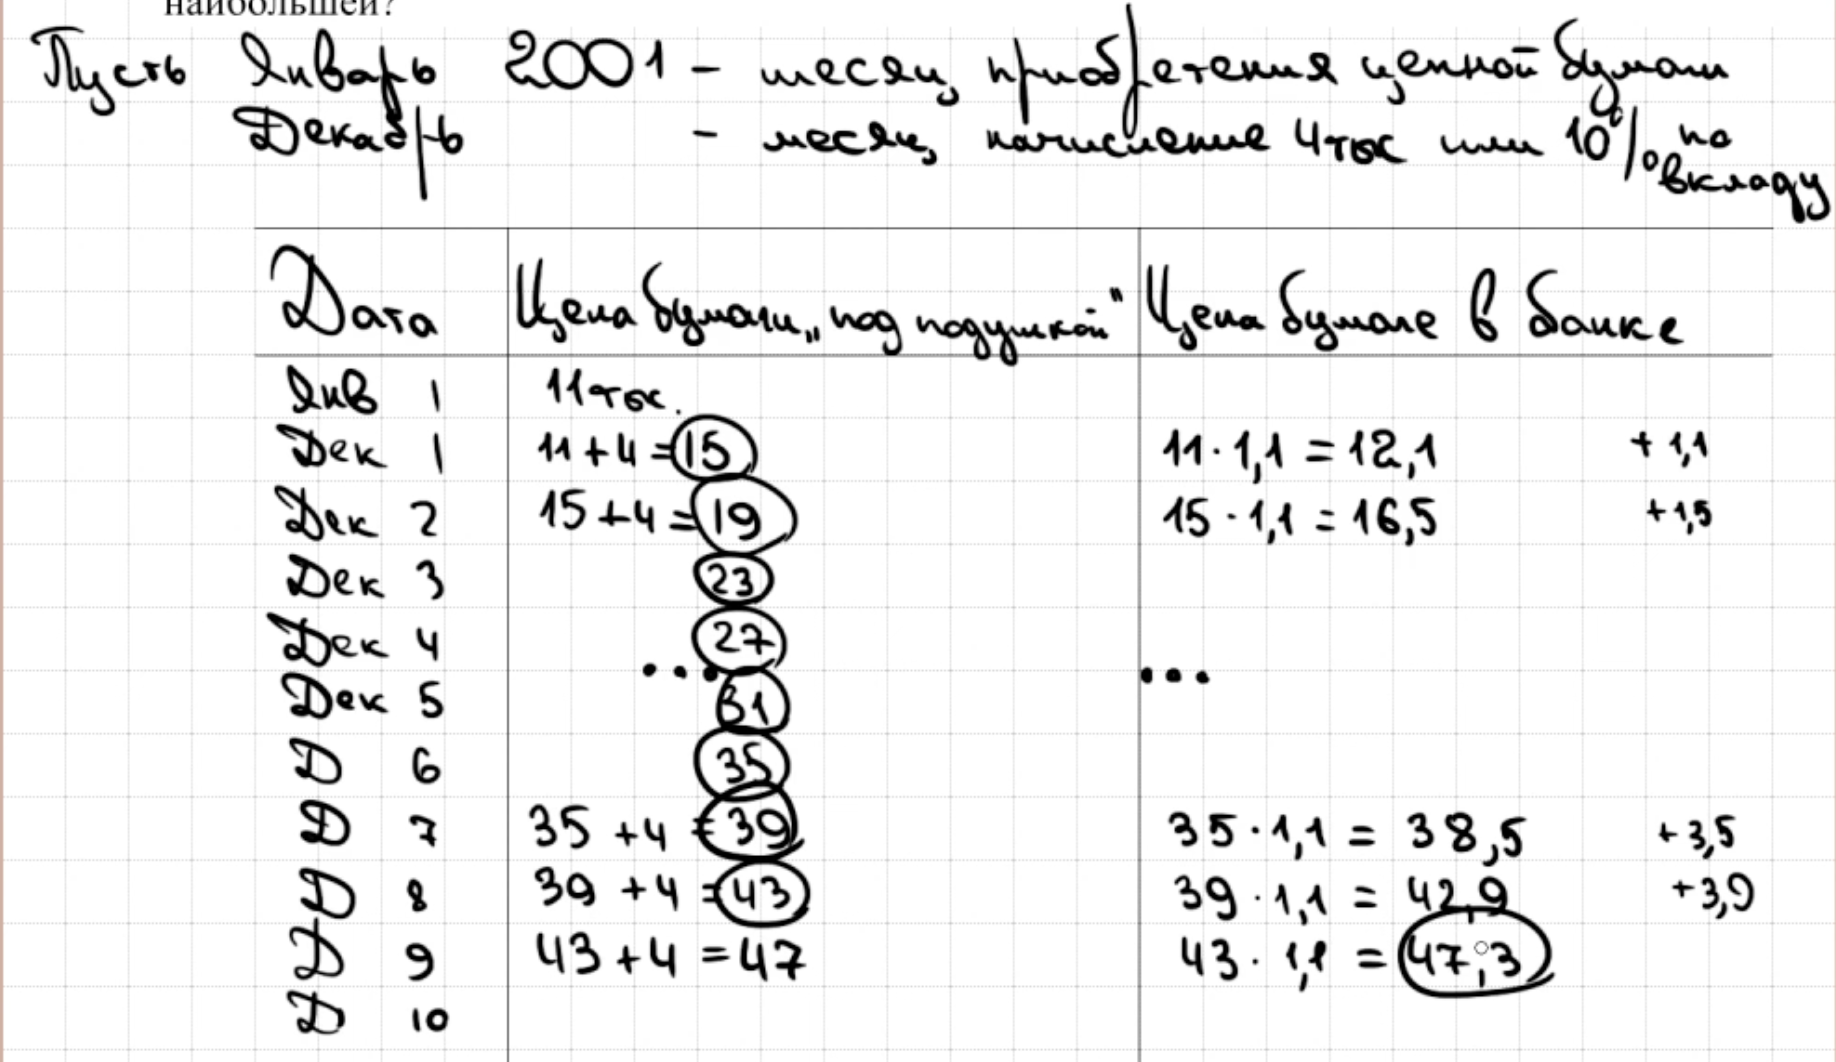 наибольшей?
Пусть Январь 2001 - месяц приобретения ценной бумаги
Декабрь - месяц начисление 4 тыс или 10% по вкладу
Дата Цена бумаги „под подушкой" Цена бумаге в банке
Янв 1 11 тыс.
Дек 1 11 + 4 = 15 11 · 1,1 = 12,1 + 1,1
Дек 2 15 + 4 = 19 15 · 1,1 = 16,5 + 1,5
Дек 3 23
Дек 4 27
... ...
Дек 5 31
Д 6 35
Д 7 35 + 4 = 39 35 · 1,1 = 38,5 + 3,5
Д 8 39 + 4 = 43 39 · 1,1 = 42,9 + 3,9
Д 9 43 + 4 = 47 43 · 1,1 = 47,3
Д 10